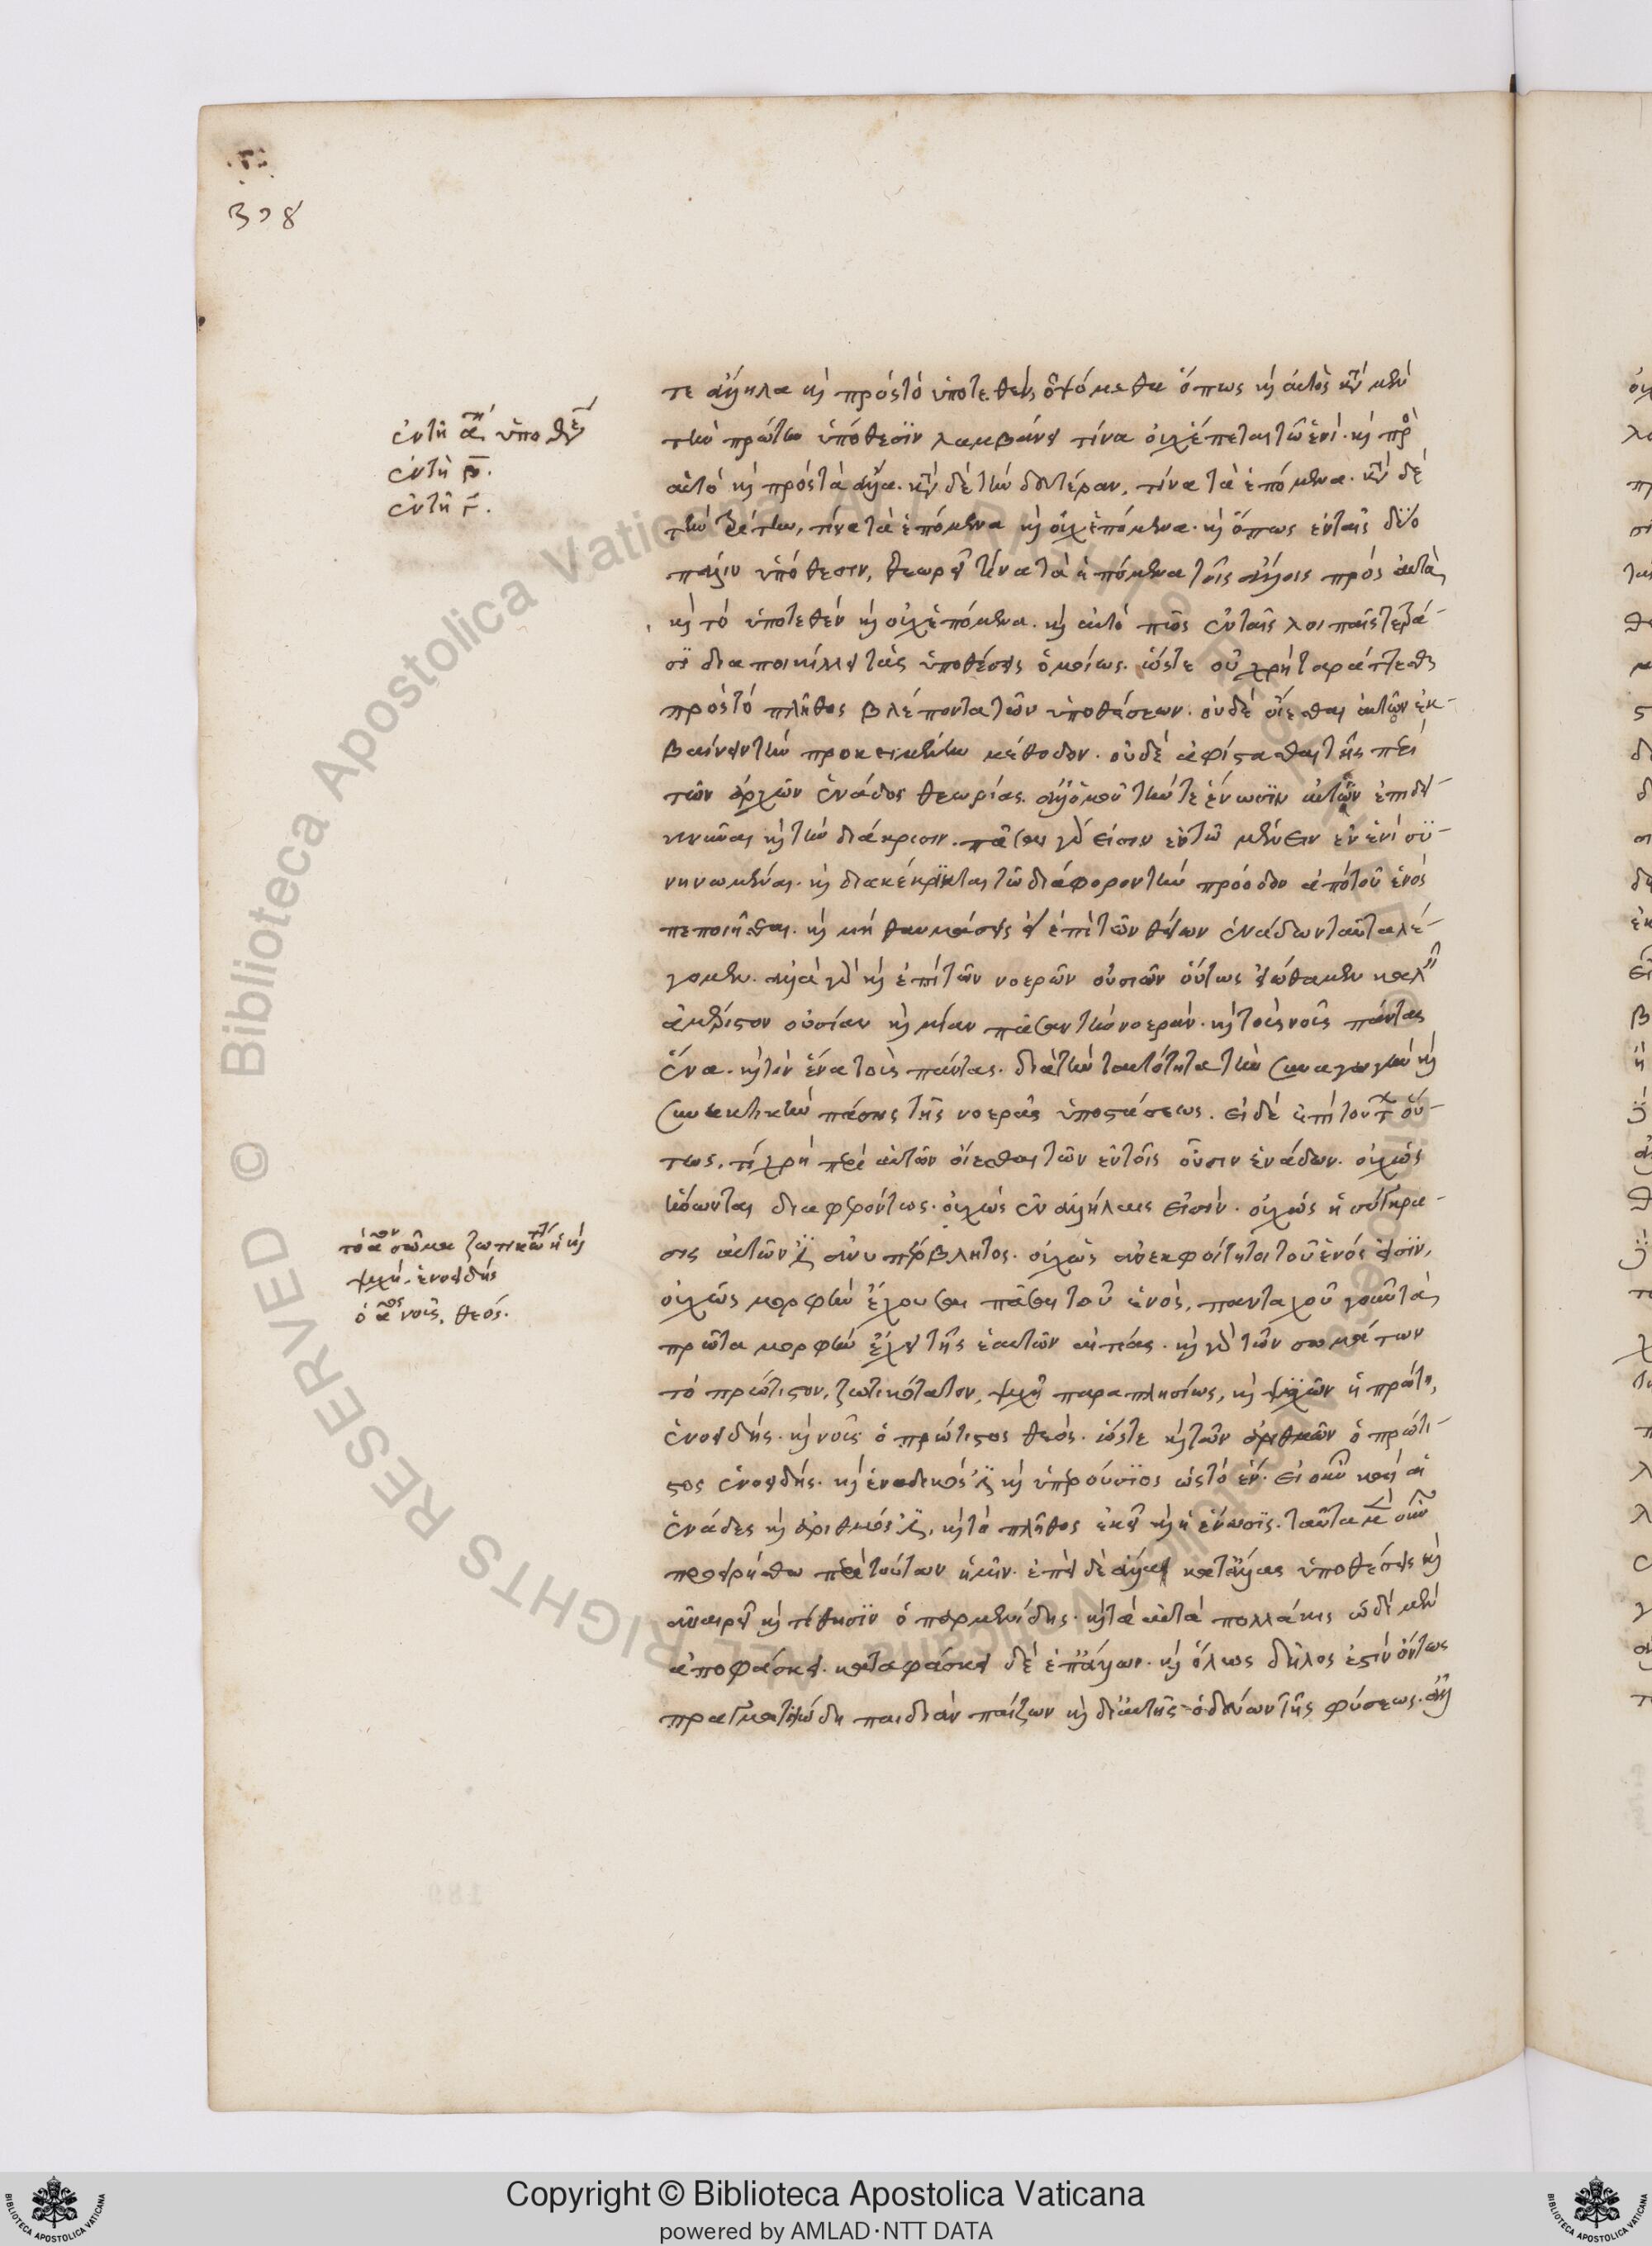 308
ἐν τῆ α΄ ὑποθέ
ἐν τῆ β.
ἐν τῆ γ.
τε ἄλληλα καὶ πρὸς τὸ ὑποτεθὲν, ὀψόμεθα ὅπως καὶ αὐτὸς κατὰ μὲν
τὴν πρώτην ὑπόθεσϊν λαμβάνει τίνα οὐχ ἕπεται τῶ ἑνὶ. καὶ πρὸς
αὐτὸ καὶ πρὸς τὰ ἄλλα. κατὰ δὲ τὴν δευτέραν, τίνα τὰ ἑπόμενα. κατὰ δὲ
τὴν τρίτην, τίνα τὰ ἑπόμενα καὶ οὐχ ἑπόμενα. καὶ ὅπως ἐν ταῖς δύο
πάλιν ὑπόθεσιν, θεωρεῖ τίνα τὰ ἑπόμενα τοῖς ἄλλοις πρὸς αὐτὰ,
καὶ τὸ ὑποτεθὲν καὶ οὐχ ἑπόμενα. καὶ αὐτὸ πῶς ἐν ταῖς λοιπαῖς τετρά-
σϊ διαποικίλλει τὰς ὑποθέσεις ὁμοίως. ὥστε οὐ χρὴ ταράττεσθαι
πρὸς τὸ πλῆθος βλέποντα τῶν ὑποθέσεων. οὐδὲ οἴεσθαι αὐτὸν ἐκ-
βαίνειν τὴν προκειμένην μέθοδον. οὐδὲ ἀφίστασθαι τῆς περὶ
τῶν ἀρχῶν ἑνάδος θεωρίας. ἀλλ' ὁμοῦ τήν τε ἕνωσϊν αὐτῶν ἐπιδει-
κνύναι καὶ τὴν διάκρισιν. πᾶσαι γὰρ εἰσιν ἐν τῶ μένειν ἐν ἑνὶ συ-
νηνωμέναι. καὶ διακέκρϊνται τῶ διάφορον τὴν πρόοδον ἀπὸ τοῦ ἑνὸς
πεποιῆσθαι. καὶ μὴ θαυμάσῃς εἰ ἐπὶ τῶν θείων ἑνάδων ταῦτα λέ-
γομεν. ἀλλὰ γὰρ καὶ ἐπὶ τῶν νοερῶν οὐσιῶν οὕτως εἰώθαμεν καλεῖν
ἀμέριστον οὐσίαν καὶ μίαν πᾶσαν τὴν νοεράν. καὶ τοὺς νοῦς πάντας
ἕνα. καὶ τὸν ἕνα τοὺς πάντας. διὰ τὴν ταυτότητα τὴν συναγωγὸν καὶ
συνεκτικὴν πάσης τῆς νοερᾶς ὑποστάσεως. εἰ δὲ ἐπὶ τούτων οὕ-
τως, τί χρὴ περὶ αὐτῶν οἴεσθαι τῶν ἐν τοῖς οὖσιν ἑνάδων. οὐχ ὡς
ἥνωνται διαφερόντως. οὐχ ὡς ἐν ἀλλήλαις εἰσίν. οὐχ ὡς ἡ σύγκρα-
σις αὐτῶν ἐστιν ἀνυπέρβλητος. οὐχ ὡς ἀνεκφοίτητοι τοῦ ἑνός εἰσϊν,
οὐχ ὡς μορφὴν ἔχουσαι πᾶσαι τοῦ ἑνὸς, πανταχοῦ γοῦν τὰ
πρῶτα μορφὴν ἔχει τῆς ἑαυτῶν αἰτίας. καὶ γὰρ τῶν σωμάτων
τὸ πρώτιστον, ζωτικώτατον, ψυχῆ παραπλησίως, καὶ ψυχῶν ἡ πρώτη,
ἑνοειδής. καὶ νοῦς ὁ πρώτιστος θεός. ὥστε καὶ τῶν ἀριθμῶν ὁ πρώτι-
στος ἑνοειδής. καὶ ἑναδικός ἐστι καὶ ὑπερούσϊος ὡς τὸ ἕν. εἰ οὖν καὶ αἱ
ἑνάδες καὶ ἀριθμός ἐστι, καὶ τὸ πλῆθος ἐκεῖ καὶ ἡ ἕνωσϊς. ταῦτα μὲν οὖν
προειρήσθω περὶ τούτων ἡμῖν. ἐπεὶ δὲ ἄλλας κατ' ἄλλας ὑποθέσεις καὶ
ἀναιρεῖ καὶ τίθησϊν ὁ παρμενίδης. καὶ τὰ αὐτὰ πολλάκις ὡδὶ μὲν
ἀποφάσκει. καταφάσκει δὲ ἐπ' ἄλλων. καὶ ὅλως δῆλός ἐστιν ὄντως
πραγματιώδη παιδιὰν παίζων καὶ δι' αὐτῆς ὁδεύων τῆς φύσεως. ἀλλ
τὸ αον σῶμα ζωτικώτ ἡ καὶ
ψυχὴ. ἑνοειδής
ὁ αος νοῦς, θεός.